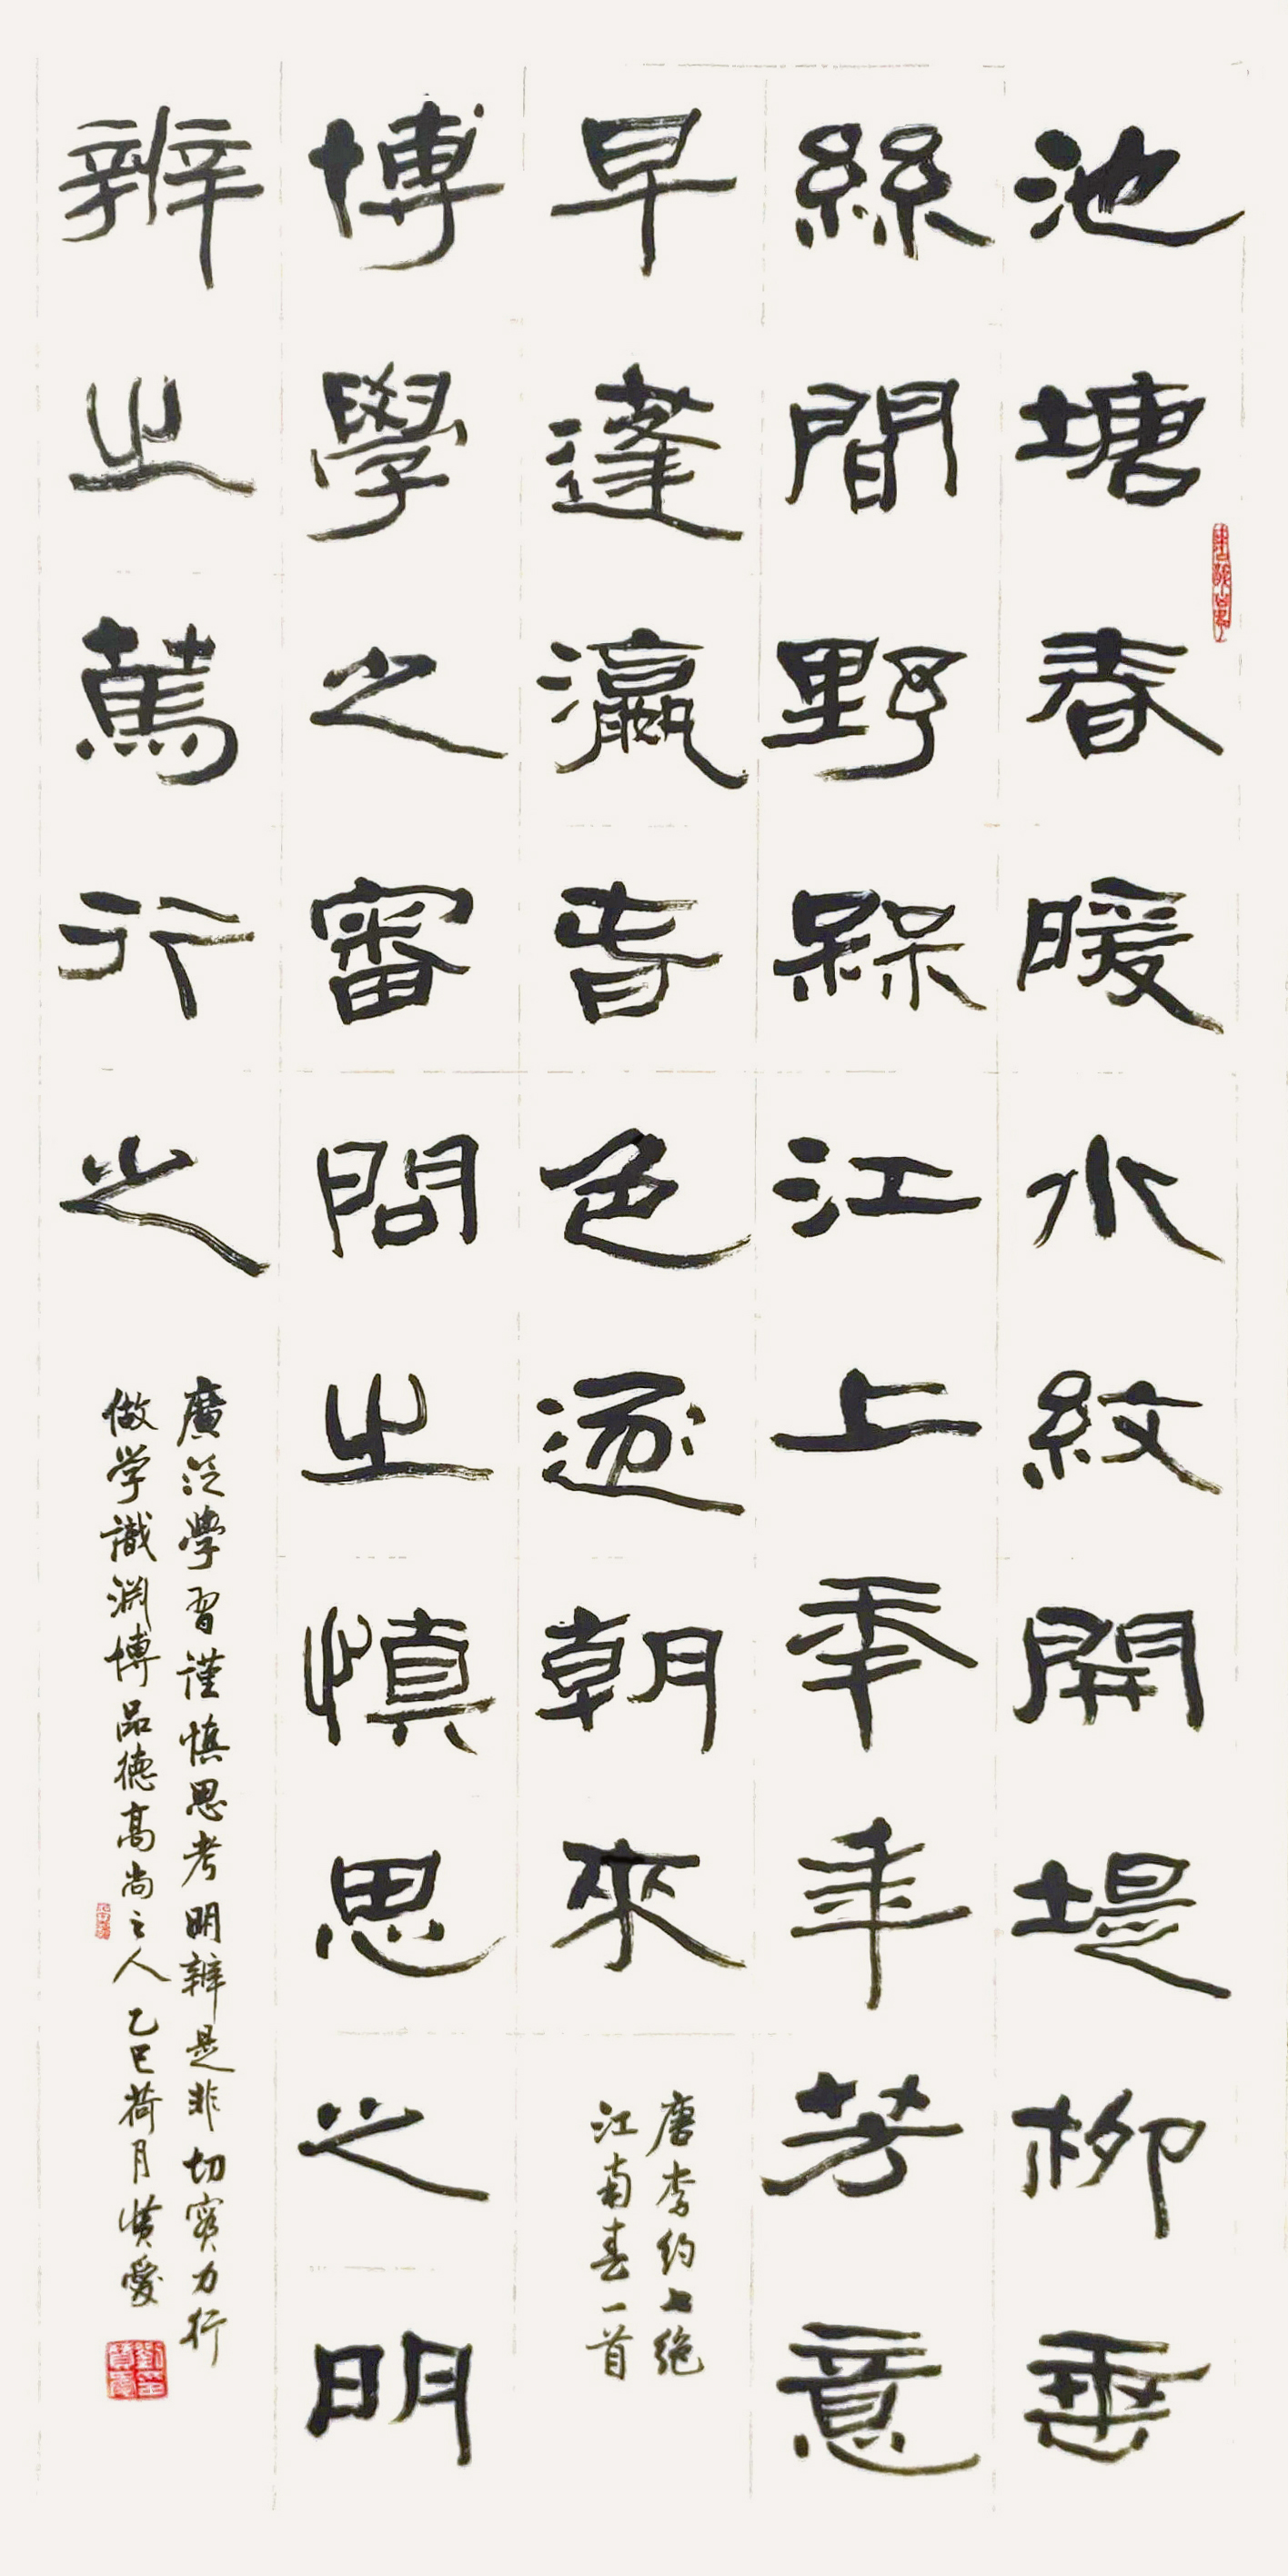 池塘春暖水紋開堤柳垂
絲間野槑江上秊年芳意
早蓬瀛旾色逐朝來
唐李約七絕
江南春一首
博學之審問之慎思之明
辨之篤行之
廣泛學習謹慎思考明辨是非切實力行
做学識渊博品德高尚之人乙巳荷月愛